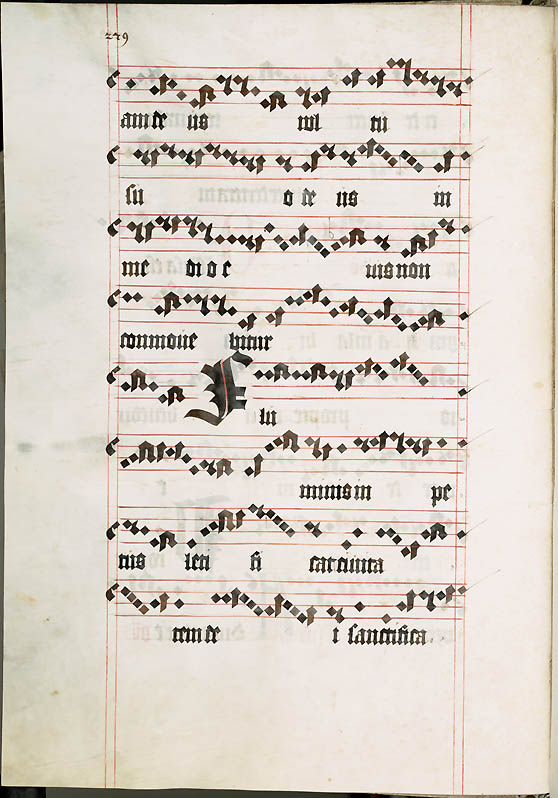 229
am de us uul tu
su o de us in
me di o e ius non
conmoue bitur
Flu
minis in pe
tus leti fi cat ciuita
tem de i sanctifica